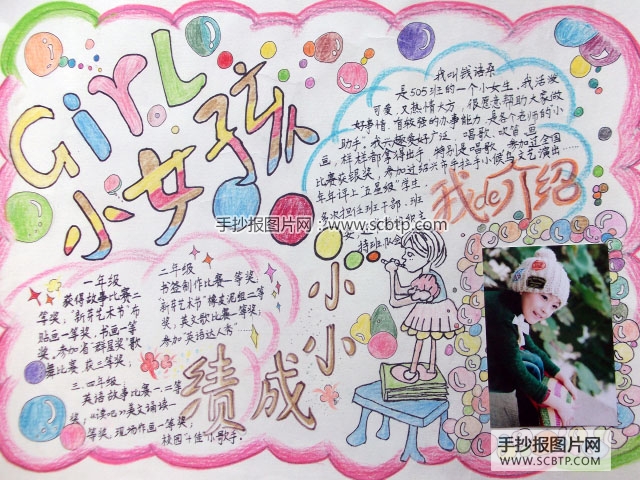 GirL
小女孩
我叫钱语桑
是505班的一个小女生，我活泼
可爱，又热情大方，很愿意帮助大家做
好事情，有较强的办事能力，是各个老师的小
助手。我兴趣爱好广泛，唱歌、吹笛、画
画，样样都拿得出手，特别是唱歌，参加过全国
比赛获银奖，参加过绍兴市手拉手小候鸟文艺演出……
年年评上“五星级”学生
多次担任班干部，班
主持班队会
我de介绍
手抄报图片网
www.scbtp.com
小小成绩
一年级
获得故事比赛二
等奖，“新芽艺术节”布
贴画一等奖，书画一等
奖，参加省“群星奖”歌
舞比赛，获三等奖；
二年级
书签制作比赛一等奖，
“新芽艺术节”橡皮泥组二等
奖，英文歌比赛一等奖，
参加“英语达人秀”……
三、四年级
英语故事比赛一、二等
奖，“读吧”英文诵读一
等奖，现场作画一等奖；
校园“十佳”小歌手。
手抄报图片网
www.SCBTP.COM